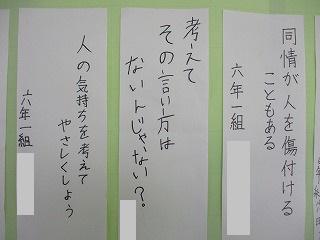 同情が人を傷付ける
こともある
六年一組
考えて
その言い方は
ないんじゃない?
人の気持ちを考えて
やさしくしよう
六年一組